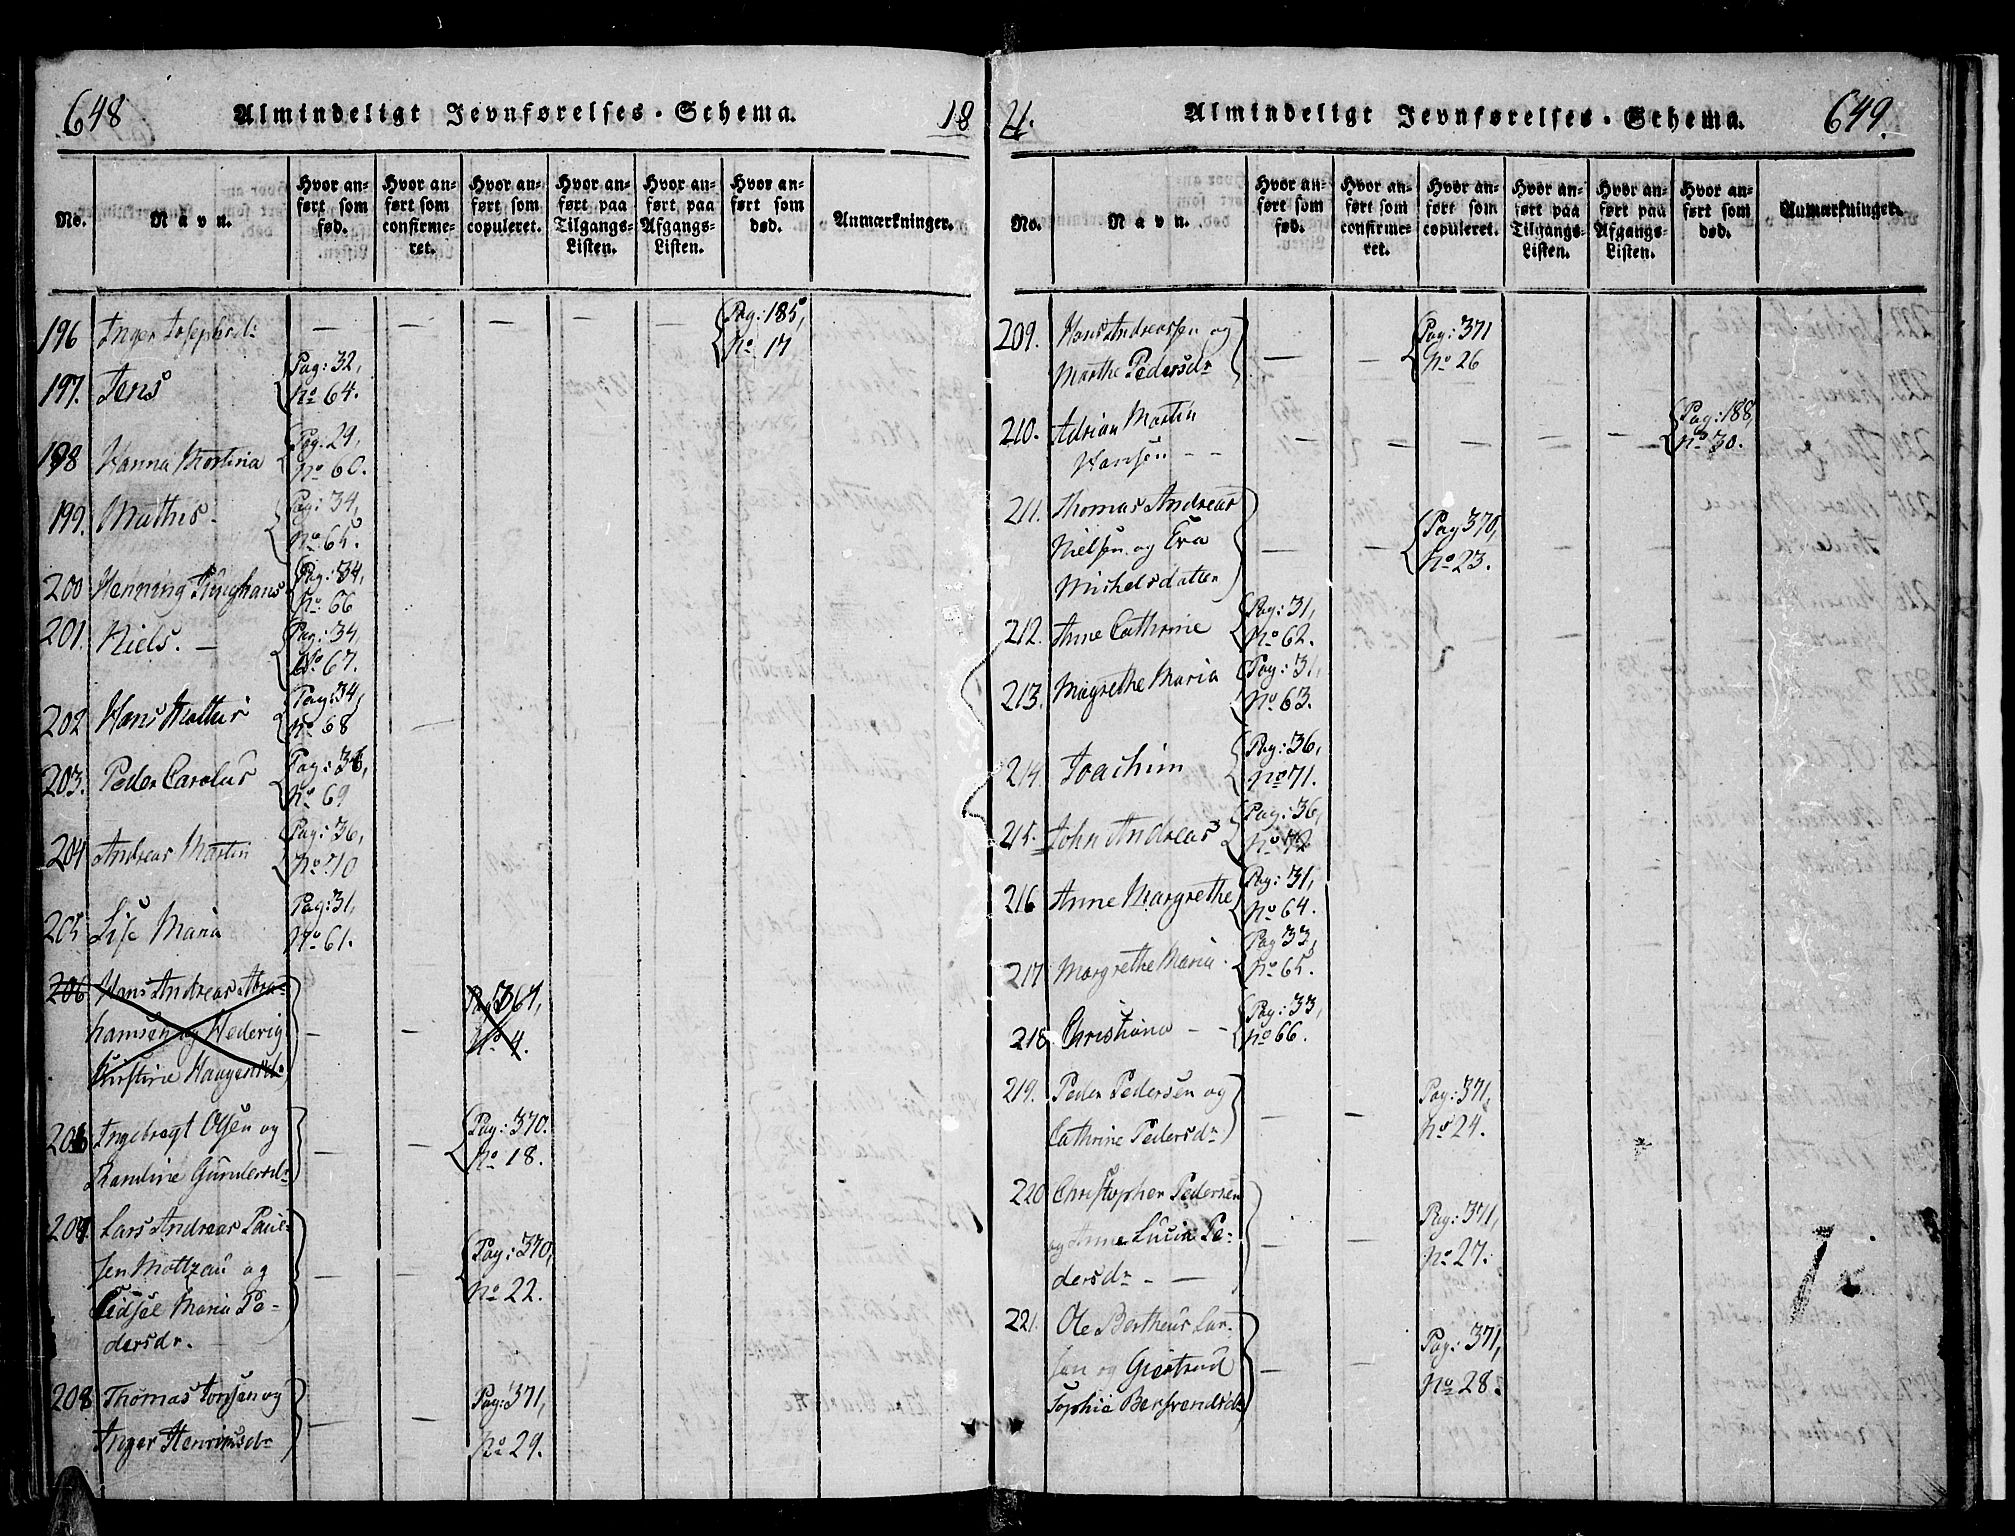 648 Almindeligt Jevnførelses-Schema. 18
No. Navn. Hvor anført som fød. Hvor anført som confirmeret. Hvor anført som copuleret. Hvor anført paa Tilgangs-Listen. Hvor anført paa Afgangs-Listen. Hvor anført som død. Anmærkninger.
196 Inger Josephsd: — — — — — Pag: 185,
No 17
197. Jens Pag: 32,
No 64.
198 Hanna Martina Pag: 29,
No 60.
199. Mathis — Pag: 34,
No: 65.
200 Henning Pag: 34,
No: 66
201. Niels. — Pag: 34,
No: 67.
202 Hans Pag: 34,
No 68
203. Peder Carolus Pag: 36,
No 69
204 Andreas Martin Pag: 36,
No: 70
205 Lise Maria Pag: 31,
No 61.
206 Hans Andreas Abra-
hamsen og Hedevig — — Pag 367,
No 4.
Kirstine Haagensd:
206 Ingebregt Olsen og Pag: 370.
— — No 18.
Gundersdr
207. Lars Andreas Paul-
sen Mottzau og — — Pag: 370,
Zidsel Maria Pe- No 22.
dersdr. —
208 Thomas Jonsen og Pag: 371,
Inger Henrichsdr — — No 29.
21. Almindeligt Jevnførelses-Schema. 649.
No. Navn. Hvor anført som fød. Hvor anført som confirmeret. Hvor anført som copuleret. Hvor anført paa Tilgangs-Listen. Hvor anført paa Afgangs-Listen. Hvor anført som død. Anmærkninger.
209. Hans Andreassen og Pag: 371
Marthe Pedersdr — — No 26
210. Adrian Martin — — — — — Pag: 188,
Hansen — — No 30.
211. Thomas Andreas
Nielsen og Eva — — Pag 370,
Michelsdatter No 23.
212. Anne Cathrine Pag: 31,
No 62.
213. Magrethe Maria Pag: 31,
No 63.
214 Joachim Pag: 36,
No 71.
215. John Andreas Pag: 36,
No 72
216 Anne Margrethe Pag: 31,
No 64.
217 Margrethe Maria Pag 33,
No 65.
218 Christiana — — Pag: 33,
No 66.
219. Peder Pedersen og Pag: 371,
Cathrine Pedersdr — — No 24.
220 Christopher Pedersen
og Anne Lucia Pe- — — Pag: 371,
dersdr — — No 27.
221. Ole Bertheus Lar-
sen og Giertrud — — Pag: 371,
Sophie Bersvendsdr No 28.